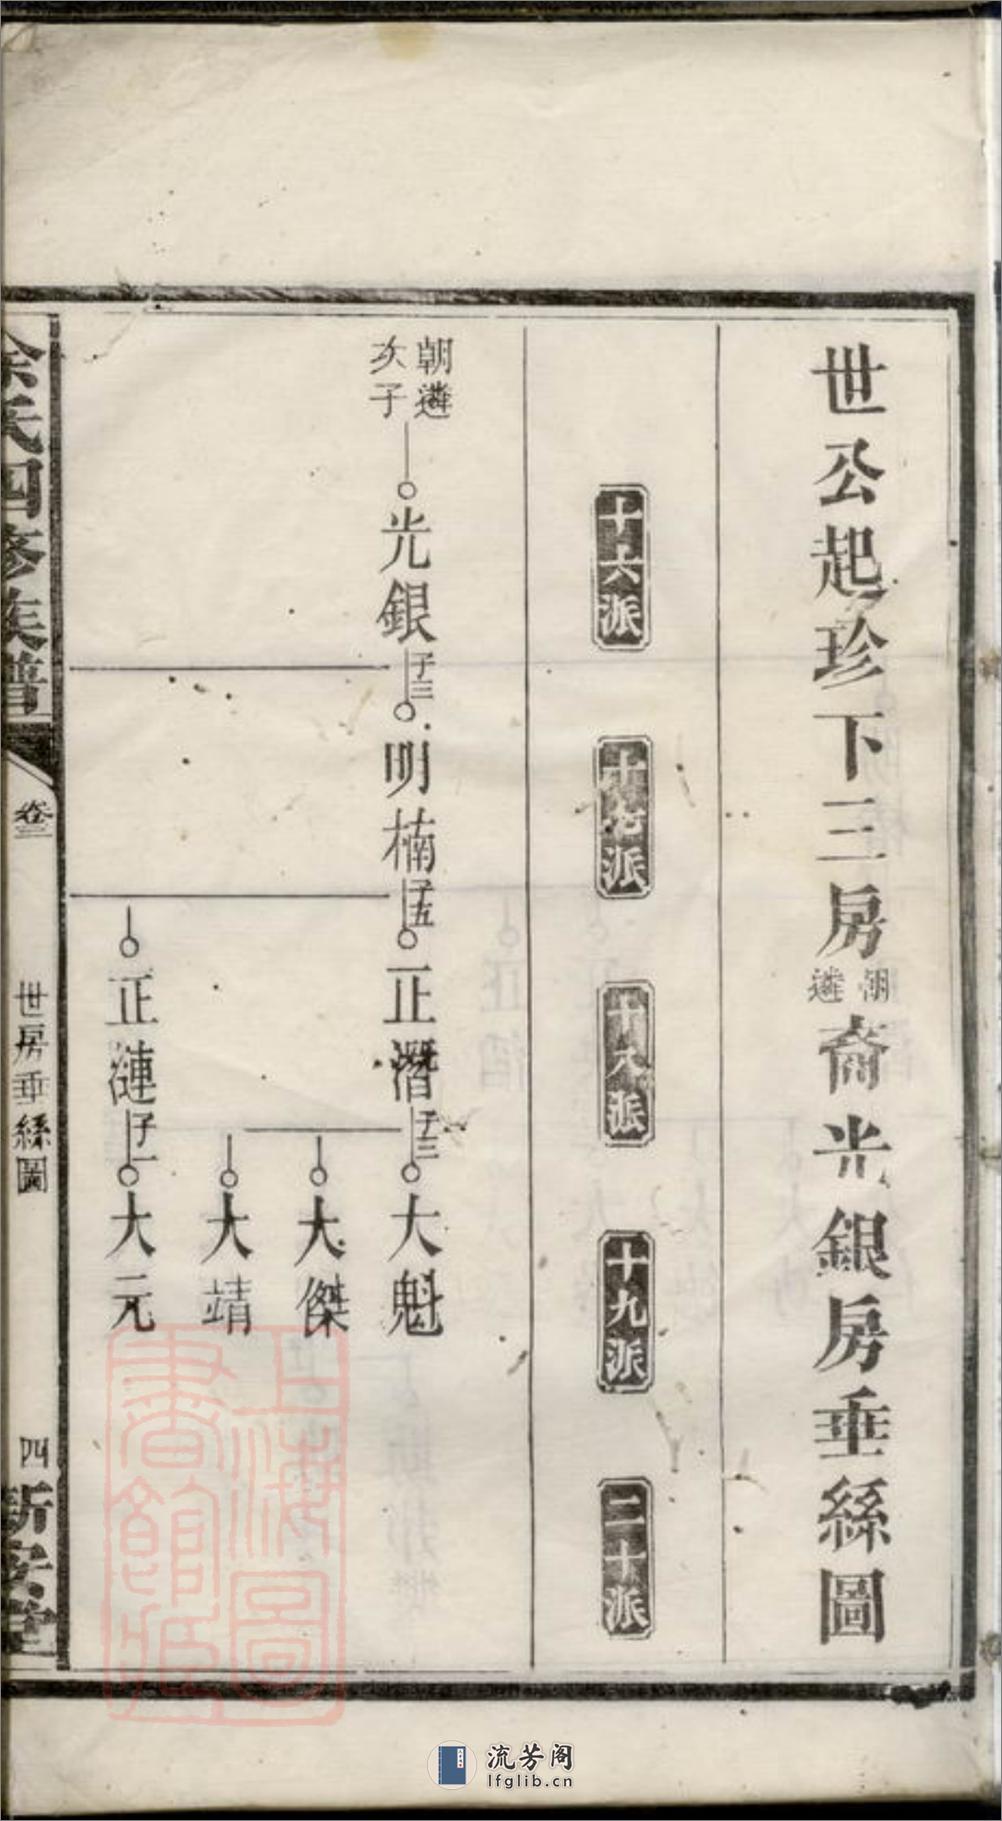 世公起珍下三房朝遴裔光銀房垂絲圖
十六派
十七派
十八派
十九派
二十派
朝遴
次子
光銀
子三
明楠
子五
正潛
子三
大魁
大傑
大靖
正漣
子一
大元
氏四修族譜
卷三
世房垂絲圖
四
新安堂
上海圖
書館藏
流芳阁
lfglib.cn